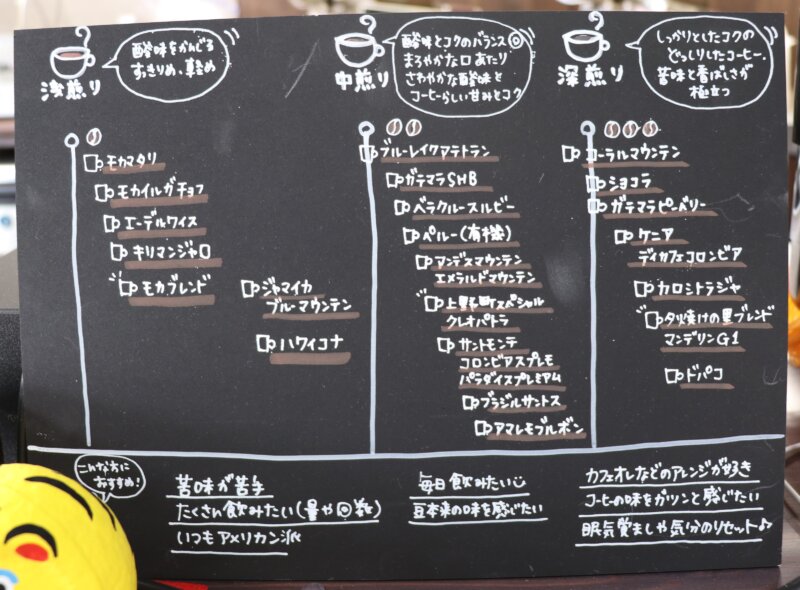 浅煎り
酸味をかんじる
すっきりめ、軽め
モカマタリ
モカイルガチョフ
エーデルワイス
キリマンジャロ
モカブレンド
ジャマイカ
ブルーマウンテン
ハワイコナ
中煎り
酸味とコクのバランス◎
まろやかな口あたり
さわやかな酸味と
コーヒーらしい甘みとコク
ブルーレイクアテトラン
ガテマラSHB
ベラクルースルビー
ペルー(有機)
アンデスマウンテン
エメラルドマウンテン
上野町スペシャル
クレオパトラ
サントモンテ
コロンビアスプレモ
パラダイスプレミアム
ブラジルサントス
アマレモブルボン
深煎り
しっかりとしたコクの
どっしりしたコーヒー。
苦味と香ばしさが
極立つ
コーラルマウンテン
ショコラ
ガテマラピーベリー
ケニア
ディカフェコロンビア
カロシトラジャ
夕焼けの里ブレンド
マンデリンG1
ドパコ
こんな方に
おすすめ!
苦味が苦手
たくさん飲みたい(量や回数)
いつもアメリカン派
毎日飲みたい
豆本来の味を感じたい
カフェオレなどのアレンジが好き
コーヒーの味をガツンと感じたい
眠気覚ましや気分のリセット♪